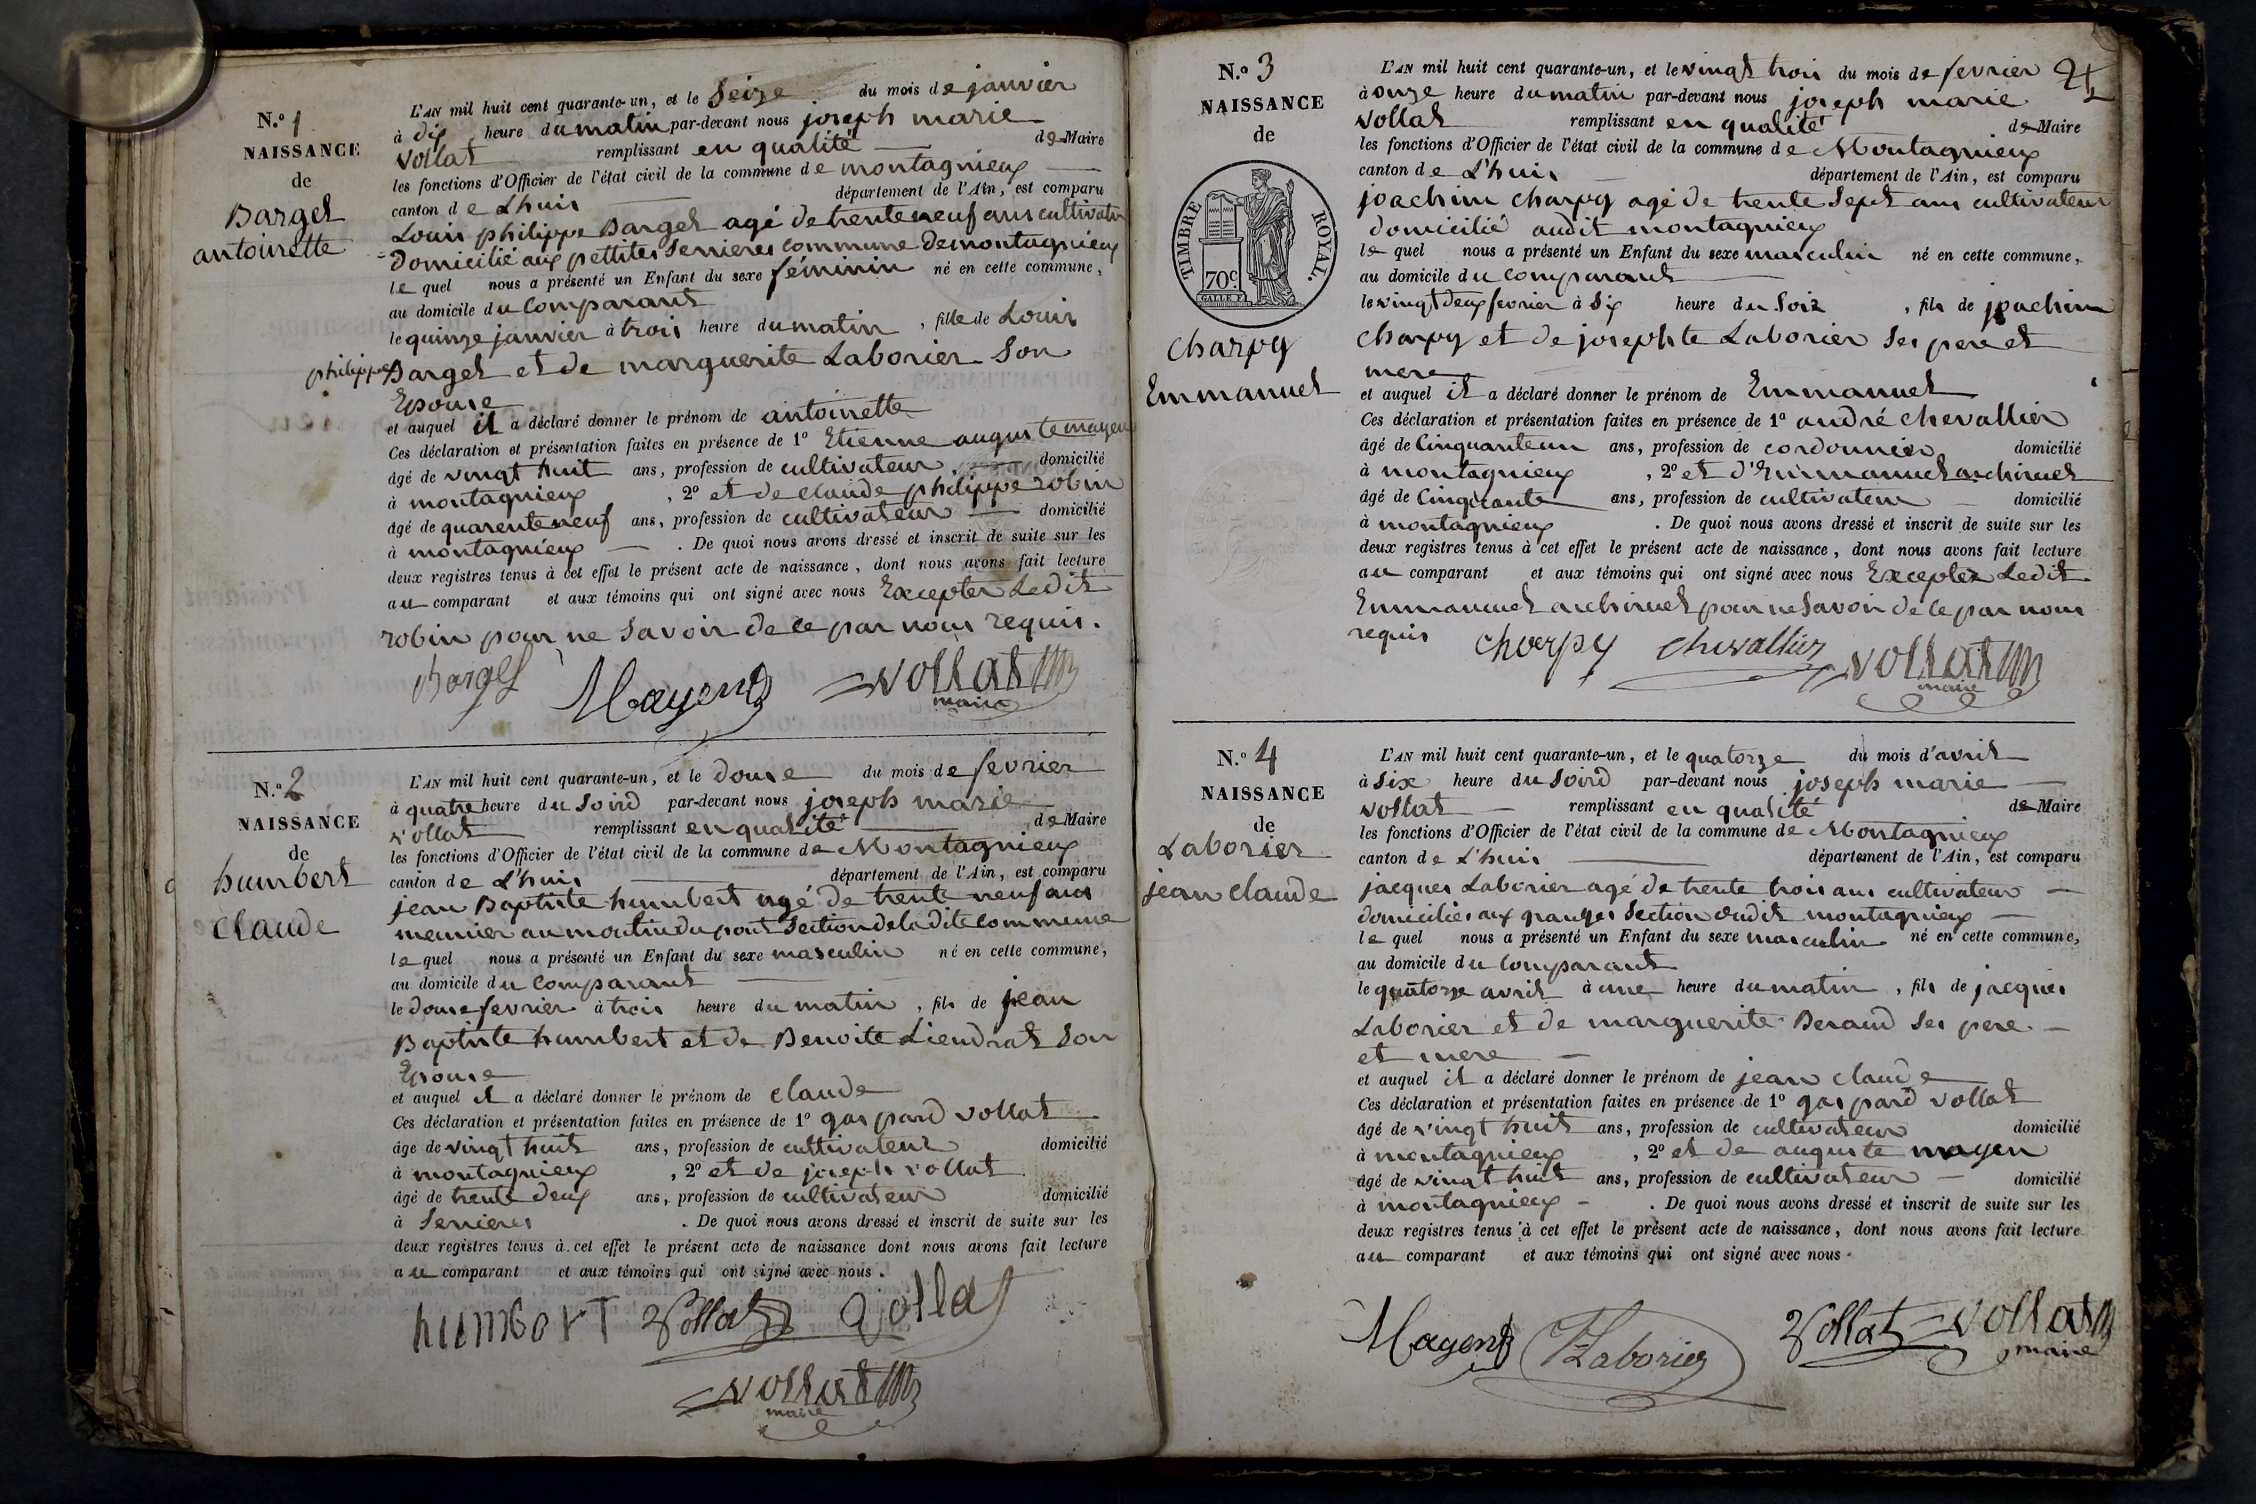 N.º 1
NAISSANCE
de
Barget
antoinette
L'AN mil huit cent quarante-un, et le Seize du mois de janvier
à dix heure du matin par-devant nous joseph marie
vollat remplissant en qualité de Maire
les fonctions d'Officier de l'état civil de la commune de montagnieux
canton de Lhuis département de l'Ain, est comparu
Louis philippe Barget agé de trente neuf ans cultivateur
Domicilié aux pettites Serrieres commune de montagnieux
lequel nous a présenté un Enfant du sexe féminin né en cette commune,
au domicile du Comparant
le quinze janvier à trois heure du matin, fille de Louis
philippe Barget et de marguerite Laborier Son
Epouse
et auquel il a déclaré donner le prénom de antoinette
Ces déclaration et présentation faites en présence de 1º Etienne auguste mayen
âgé de vingt huit ans, profession de cultivateur domicilié
à montagnieux, 2º et de claude philippe robin
âgé de quarente neuf ans, profession de cultivateur domicilié
à montagnieux. De quoi nous avons dressé et inscrit de suite sur les
deux registres tenus à cet effet le présent acte de naissance, dont nous avons fait lecture
au comparant et aux témoins qui ont signé avec nous Excepter Ledit
robin pour ne Savoir de ce par nous requis.
barget Mayen vollat
maire
N.º 2
NAISSANCE
de
humbert
claude
L'AN mil huit cent quarante-un, et le douse du mois de fevrier
à quatre heure du Soird par-devant nous joseph marie
vollat remplissant en qualité de Maire
les fonctions d'Officier de l'état civil de la commune de Montagnieux
canton de L'huis département de l'Ain, est comparu
jean Baptiste humbert agé de trente neuf ans
meunier au moulin du pont Section de la dite commune
lequel nous a présenté un Enfant du sexe masculin né en cette commune,
au domicile du Comparant
le douse fevrier à trois heure du matin, fils de jean
Baptiste humbert et de Benoite Liendrat Son
Epouse
et auquel il a déclaré donner le prénom de claude
Ces déclaration et présentation faites en présence de 1º gaspard vollat
âge de vingt huit ans, profession de cultivateur domicilié
à montagnieux, 2º et de joseph vollat
âgé de trente deux ans, profession de cultivateur domicilié
à Serrieres. De quoi nous avons dressé et inscrit de suite sur les
deux registres tenus à cet effet le présent acte de naissance dont nous avons fait lecture
au comparant et aux témoins qui ont signé avec nous.
humbert Vollat vollat
vollat
maire
N.º 3
NAISSANCE
de
TIMBRE ROYAL.
70c.
GALLE F.
charpy
Emmanuel
L'AN mil huit cent quarante-un, et le vingt trois du mois de fevrier
à onze heure du matin par-devant nous joseph marie
vollat remplissant en qualité de Maire
les fonctions d'Officier de l'état civil de la commune de Montagnieux
canton de L'huis département de l'Ain, est comparu
joachim charpy agé de trente Sept ans cultivateur
domicilié audit montagnieux
lequel nous a présenté un Enfant du sexe masculin né en cette commune,
au domicile du comparant
le vingt deux fevrier à Six heure du Soir, fils de joachim
charpy et de josephte Laborier Ses pere et
mere
et auquel il a déclaré donner le prénom de Emmanuel
Ces déclaration et présentation faites en présence de 1º andré chevallier
âgé de Cinquanteun ans, profession de cordonnier domicilié
à montagnieux, 2º et d'Emmanuel archinet
âgé de Cinquante ans, profession de cultivateur domicilié
à montagnieux. De quoi nous avons dressé et inscrit de suite sur les
deux registres tenus à cet effet le présent acte de naissance, dont nous avons fait lecture
au comparant et aux témoins qui ont signé avec nous Excepter Ledit
Emmanuel archinet pour ne Savoir de ce par nous
requis
charpy chevallier vollat
maire
N.º 4
NAISSANCE
de
Laborier
jean claude
L'AN mil huit cent quarante-un, et le quatorze du mois d'avril
à Six heure du Soird par-devant nous joseph marie
vollat remplissant en qualité de Maire
les fonctions d'Officier de l'état civil de la commune de Montagnieux
canton de L'huis département de l'Ain, est comparu
jacques Laborier agé de trente trois ans cultivateur
domicilié aux granges Section dudit montagnieux
lequel nous a présenté un Enfant du sexe masculin né en cette commune,
au domicile du Comparant
le quatorze avril à une heure du matin, fils de jacques
Laborier et de marguerite Beraud Ses pere
et mere
et auquel il a déclaré donner le prénom de jean claude
Ces déclaration et présentation faites en présence de 1º gaspard vollat
âgé de vingt huit ans, profession de cultivateur domicilié
à montagnieux, 2º et de auguste mayen
âgé de vingt huit ans, profession de cultivateur domicilié
à montagnieux. De quoi nous avons dressé et inscrit de suite sur les
deux registres tenus à cet effet le présent acte de naissance, dont nous avons fait lecture
au comparant et aux témoins qui ont signé avec nous.
Mayen Laborier Vollat vollat
maire